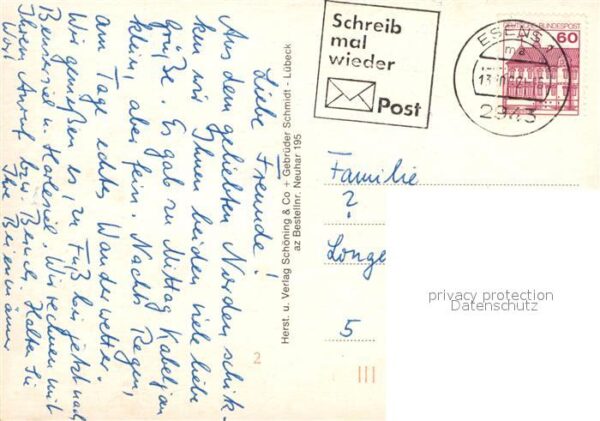 Liebe Freunde!
Aus dem geliebten Norden schik-
ken wir Ihnen beiden viele liebe
Grüße. Es gab zu Mittag Kabeljau
klein, aber fein. Nachts Regen,
am Tage echtes Wanderwetter.
Wir genießen es, zu Fuß bei jetzt nach
Bensersiel u. Harlesiel. Wir rechnen mit
Ihrem Anruf bzw. Besuch. Halten Sie
Wort
Ihre
Herst. u. Verlag Schöning & Co + Gebrüder Schmidt - Lübeck
az Bestellnr. Neuhar 195
Schreib
mal
wieder
Post
BUNDESPOST
60
ESENS
2943
Familie
?
Longe
5
2
III
privacy protection
Datenschutz